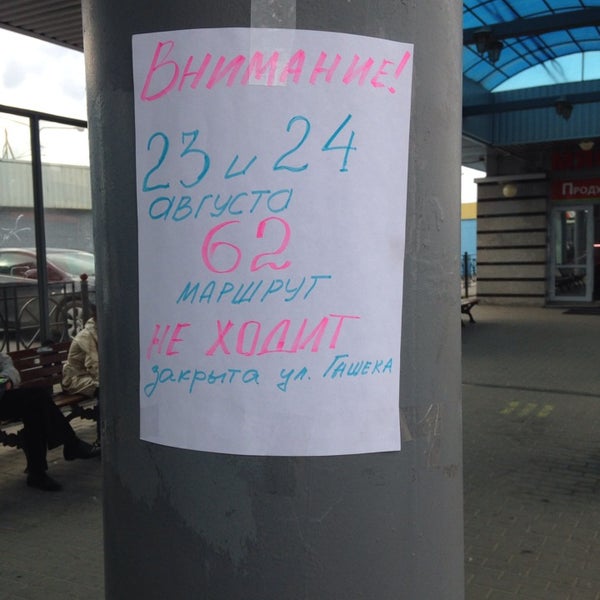 Внимание!
23 и 24
августа
62
маршрут
не ходит
закрыта ул. Гашека
Проду